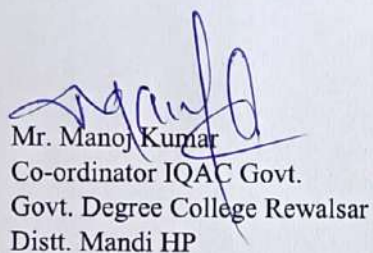 Mr. Manoj Kumar
Co-ordinator IQAC Govt.
Govt. Degree College Rewalsar
Distt. Mandi HP